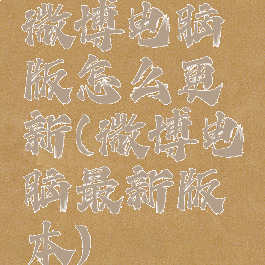 微博电脑
版怎么更
新(微博电
脑最新版
本)